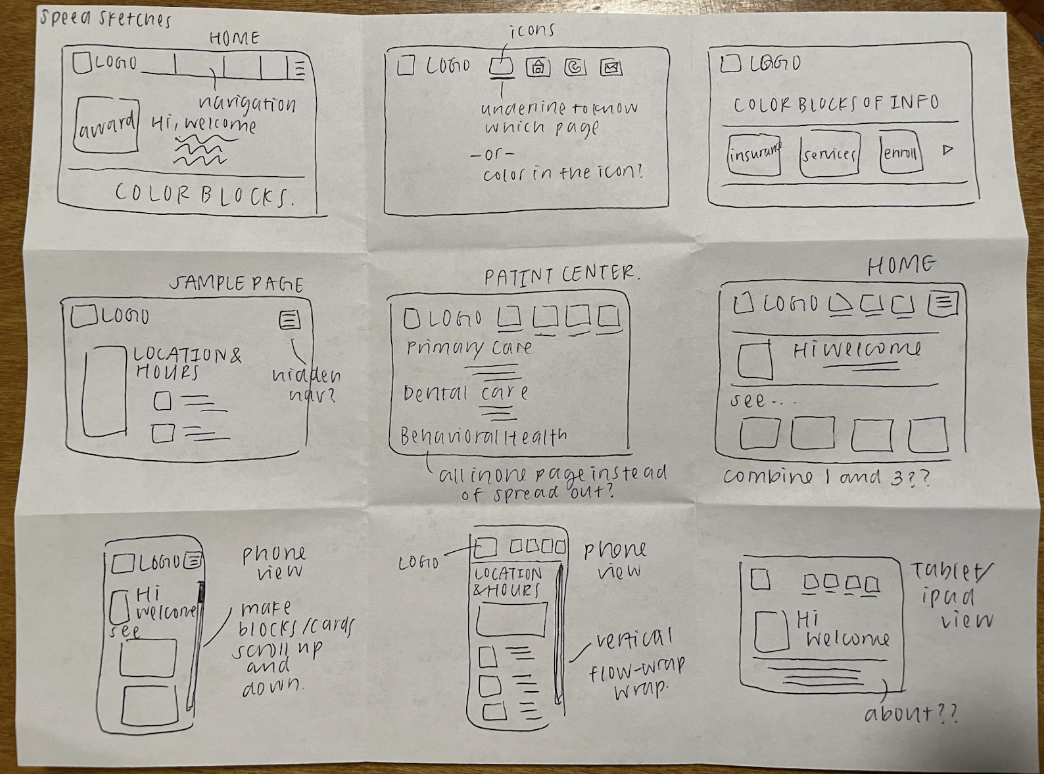 speed sketches
HOME
LOGO
navigation
award
Hi, welcome
COLOR BLOCKS.
icons
LOGO
underine to know
which page
-or-
color in the icon?
LOGO
COLOR BLOCKS OF INFO
insuran
services
enroll
SAMPLE PAGE
LOGO
LOCATION &
HOURS
hidden
nav?
PATINT CENTER.
LOGO
Primary care
Dental care
Behavioral Health
all in one page instead
of spread out?
HOME
LOGO
Hi welcome
see...
combine 1 and 3??
LOGO
Hi
welcome
see
phone
view
make
blocks/cards
scroll up
and
down.
LOGO
LOCATION
& HOURS
phone
view
vertical
flow-wrap
wrap.
Hi
welcome
Tablet/
ipad
view
about??